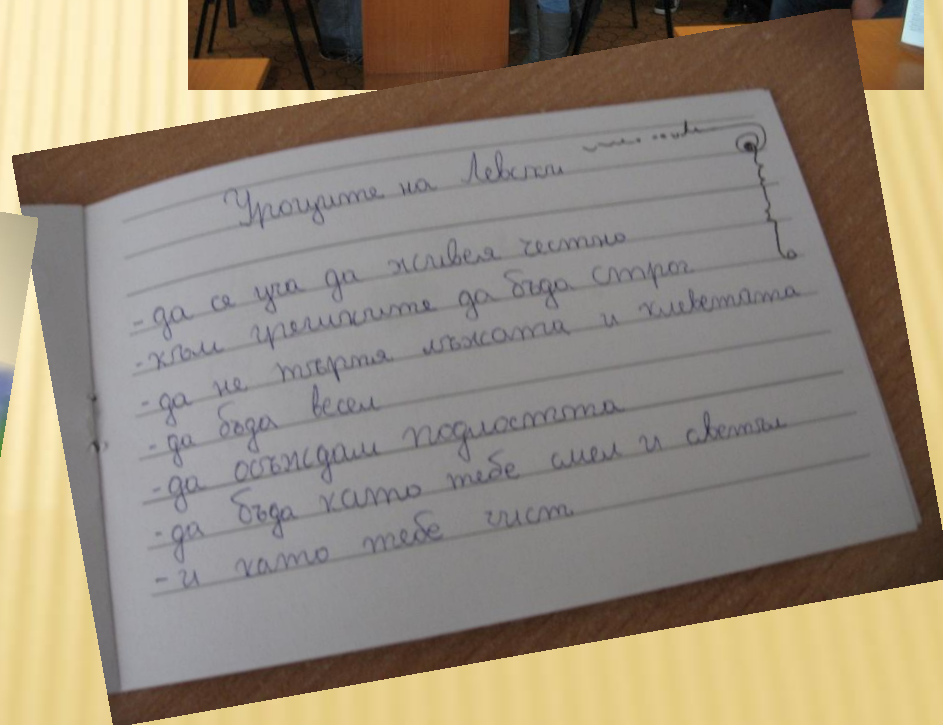 Уроците на Левски
- да се уча да живея честно
- към грешките да бъда строг
- да не търпя лъжата и клеветата
- да бъда весел
- да осъждам подлостта
- да бъда като тебе смел и светъл
- и като тебе чист